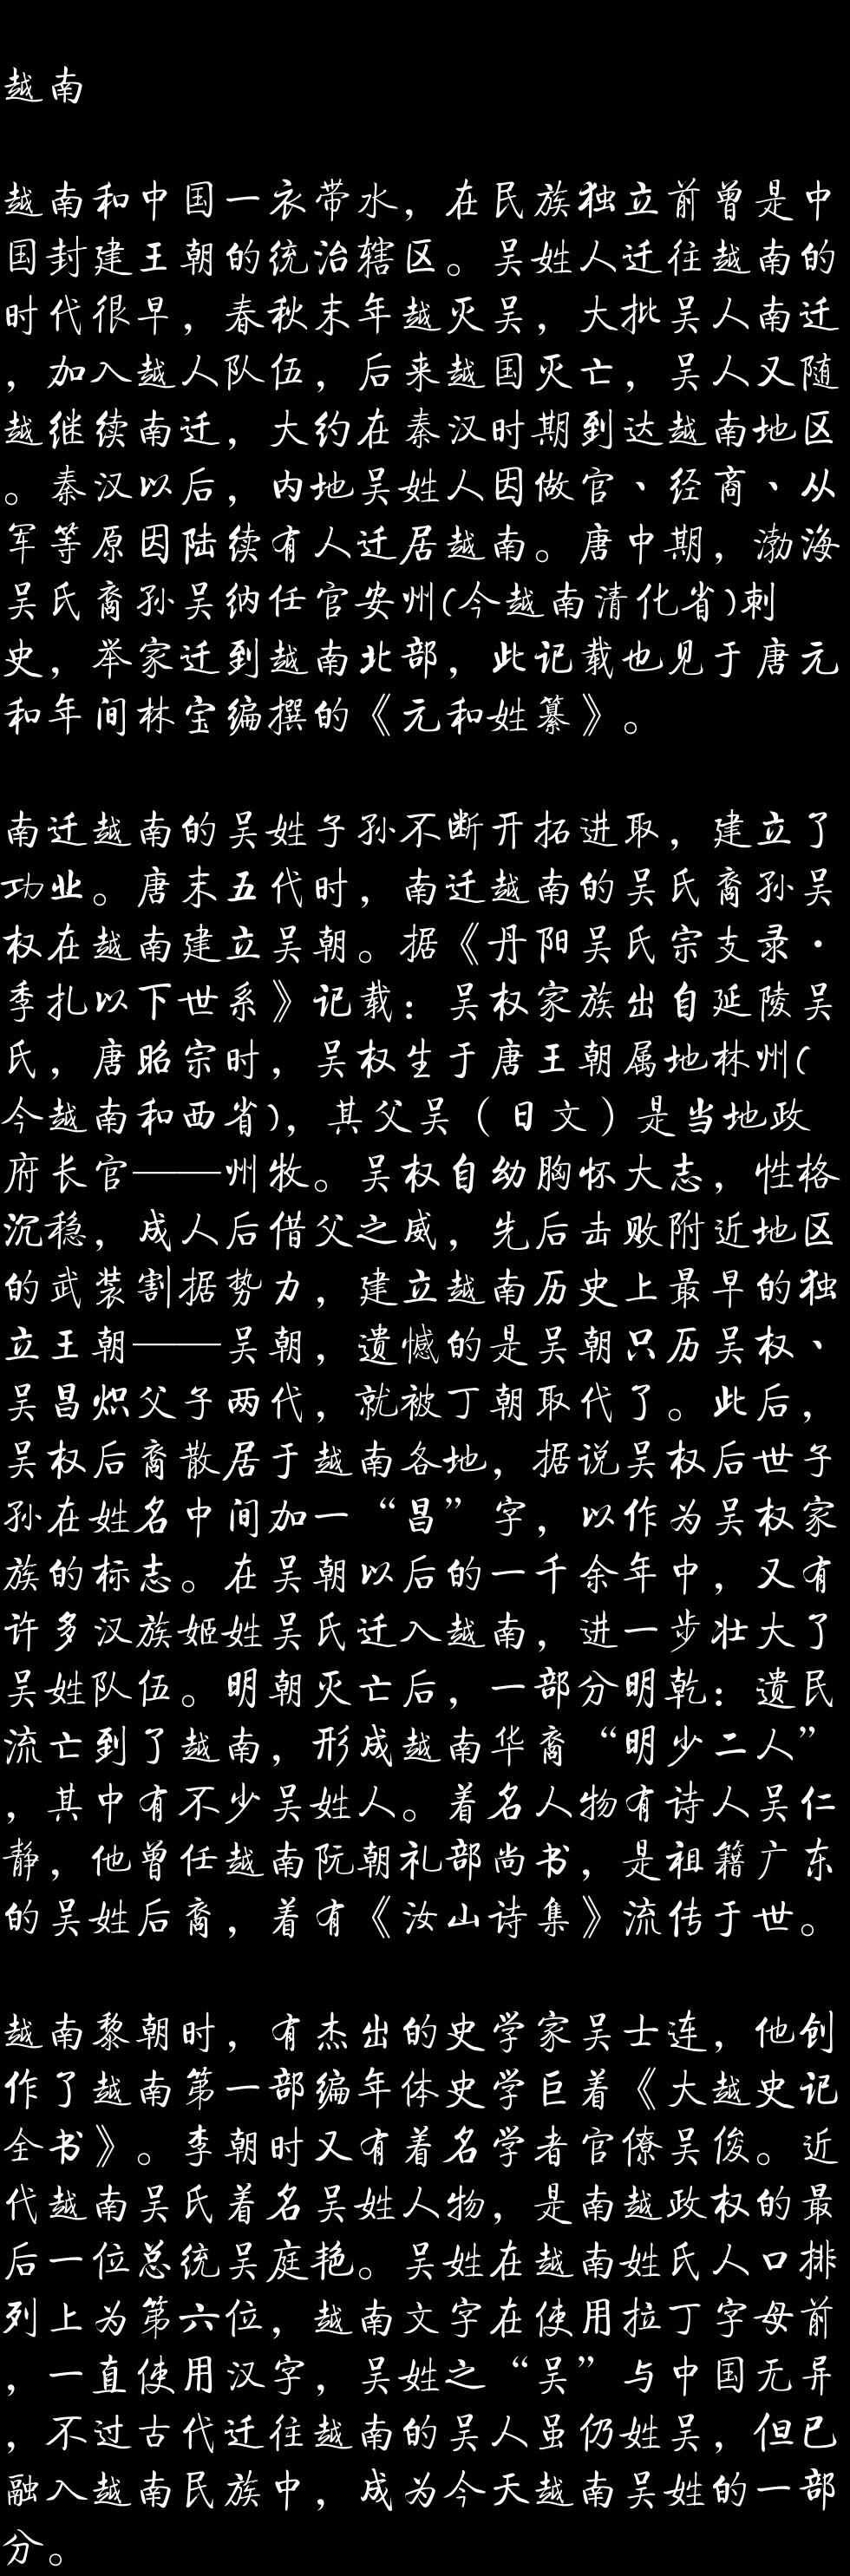 越南
越南和中国一衣带水，在民族独立前曾是中
国封建王朝的统治辖区。吴姓人迁往越南的
时代很早，春秋末年越灭吴，大批吴人南迁
，加入越人队伍，后来越国灭亡，吴人又随
越继续南迁，大约在秦汉时期到达越南地区
。秦汉以后，内地吴姓人因做官、经商、从
军等原因陆续有人迁居越南。唐中期，渤海
吴氏裔孙吴纳任官安州(今越南清化省)刺
史，举家迁到越南北部，此记载也见于唐元
和年间林宝编撰的《元和姓纂》。
南迁越南的吴姓子孙不断开拓进取，建立了
功业。唐末五代时，南迁越南的吴氏裔孙吴
权在越南建立吴朝。据《丹阳吴氏宗支录·
季扎以下世系》记载：吴权家族出自延陵吴
氏，唐昭宗时，吴权生于唐王朝属地林州(
今越南和西省)，其父吴（日文）是当地政
府长官——州牧。吴权自幼胸怀大志，性格
沉稳，成人后借父之威，先后击败附近地区
的武装割据势力，建立越南历史上最早的独
立王朝——吴朝，遗憾的是吴朝只历吴权、
吴昌炽父子两代，就被丁朝取代了。此后，
吴权后裔散居于越南各地，据说吴权后世子
孙在姓名中间加一“昌”字，以作为吴权家
族的标志。在吴朝以后的一千余年中，又有
许多汉族姬姓吴氏迁入越南，进一步壮大了
吴姓队伍。明朝灭亡后，一部分明乾：遗民
流亡到了越南，形成越南华裔“明少二人”
，其中有不少吴姓人。着名人物有诗人吴仁
静，他曾任越南阮朝礼部尚书，是祖籍广东
的吴姓后裔，着有《汝山诗集》流传于世。
越南黎朝时，有杰出的史学家吴士连，他创
作了越南第一部编年体史学巨着《大越史记
全书》。李朝时又有着名学者官僚吴俊。近
代越南吴氏着名吴姓人物，是南越政权的最
后一位总统吴庭艳。吴姓在越南姓氏人口排
列上为第六位，越南文字在使用拉丁字母前
，一直使用汉字，吴姓之“吴”与中国无异
，不过古代迁往越南的吴人虽仍姓吴，但已
融入越南民族中，成为今天越南吴姓的一部
分。